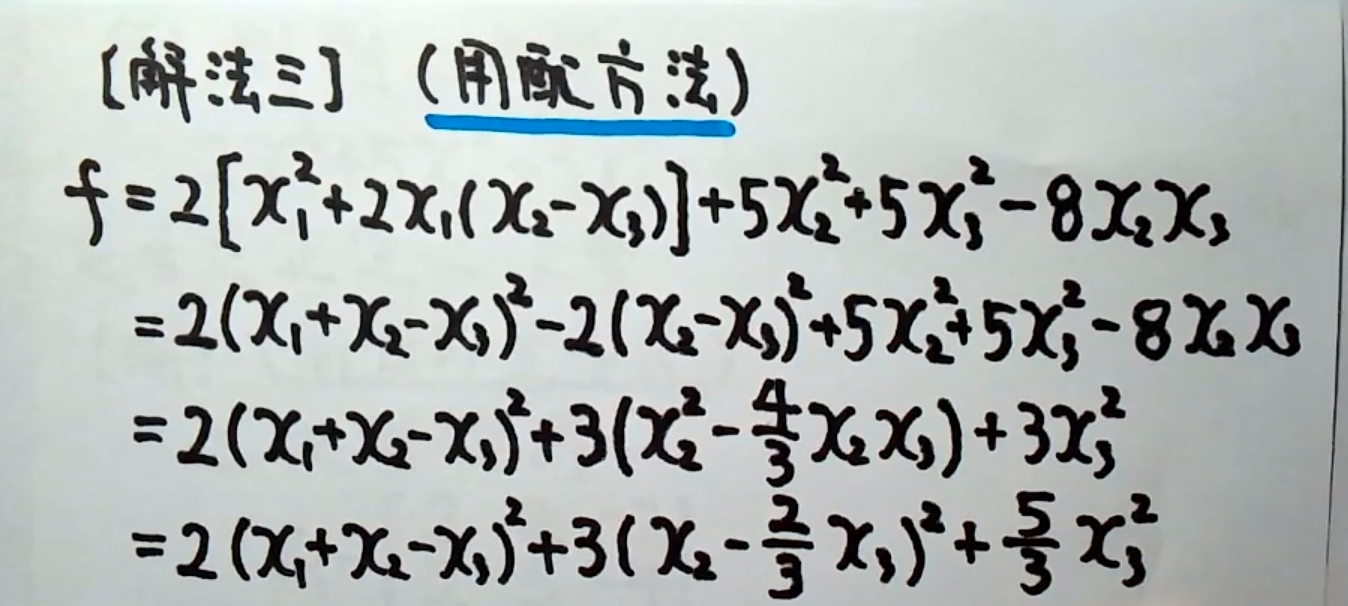 [解法三] (用配方法)
f=2[x₁²+2x₁(x₂-x₃)]+5x₂²+5x₃²-8x₂x₃
=2(x₁+x₂-x₃)²-2(x₂-x₃)²+5x₂²+5x₃²-8x₂x₃
=2(x₁+x₂-x₃)²+3(x₂²-4/3x₂x₃)+3x₃²
=2(x₁+x₂-x₃)²+3(x₂-2/3x₃)²+5/3x₃²